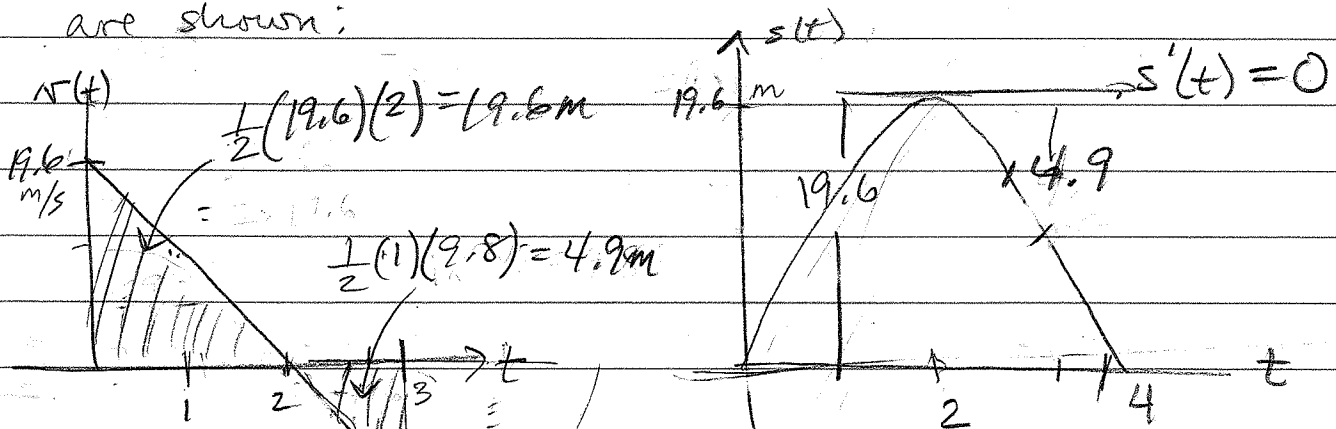 are shown:
v(t)
1/2(19.6)(2) = 19.6m
19.6
m/s
1/2(1)(9.8) = 4.9m
1
2
3
t
s(t)
s'(t) = 0
19.6 m
19.6
4.9
2
4
t